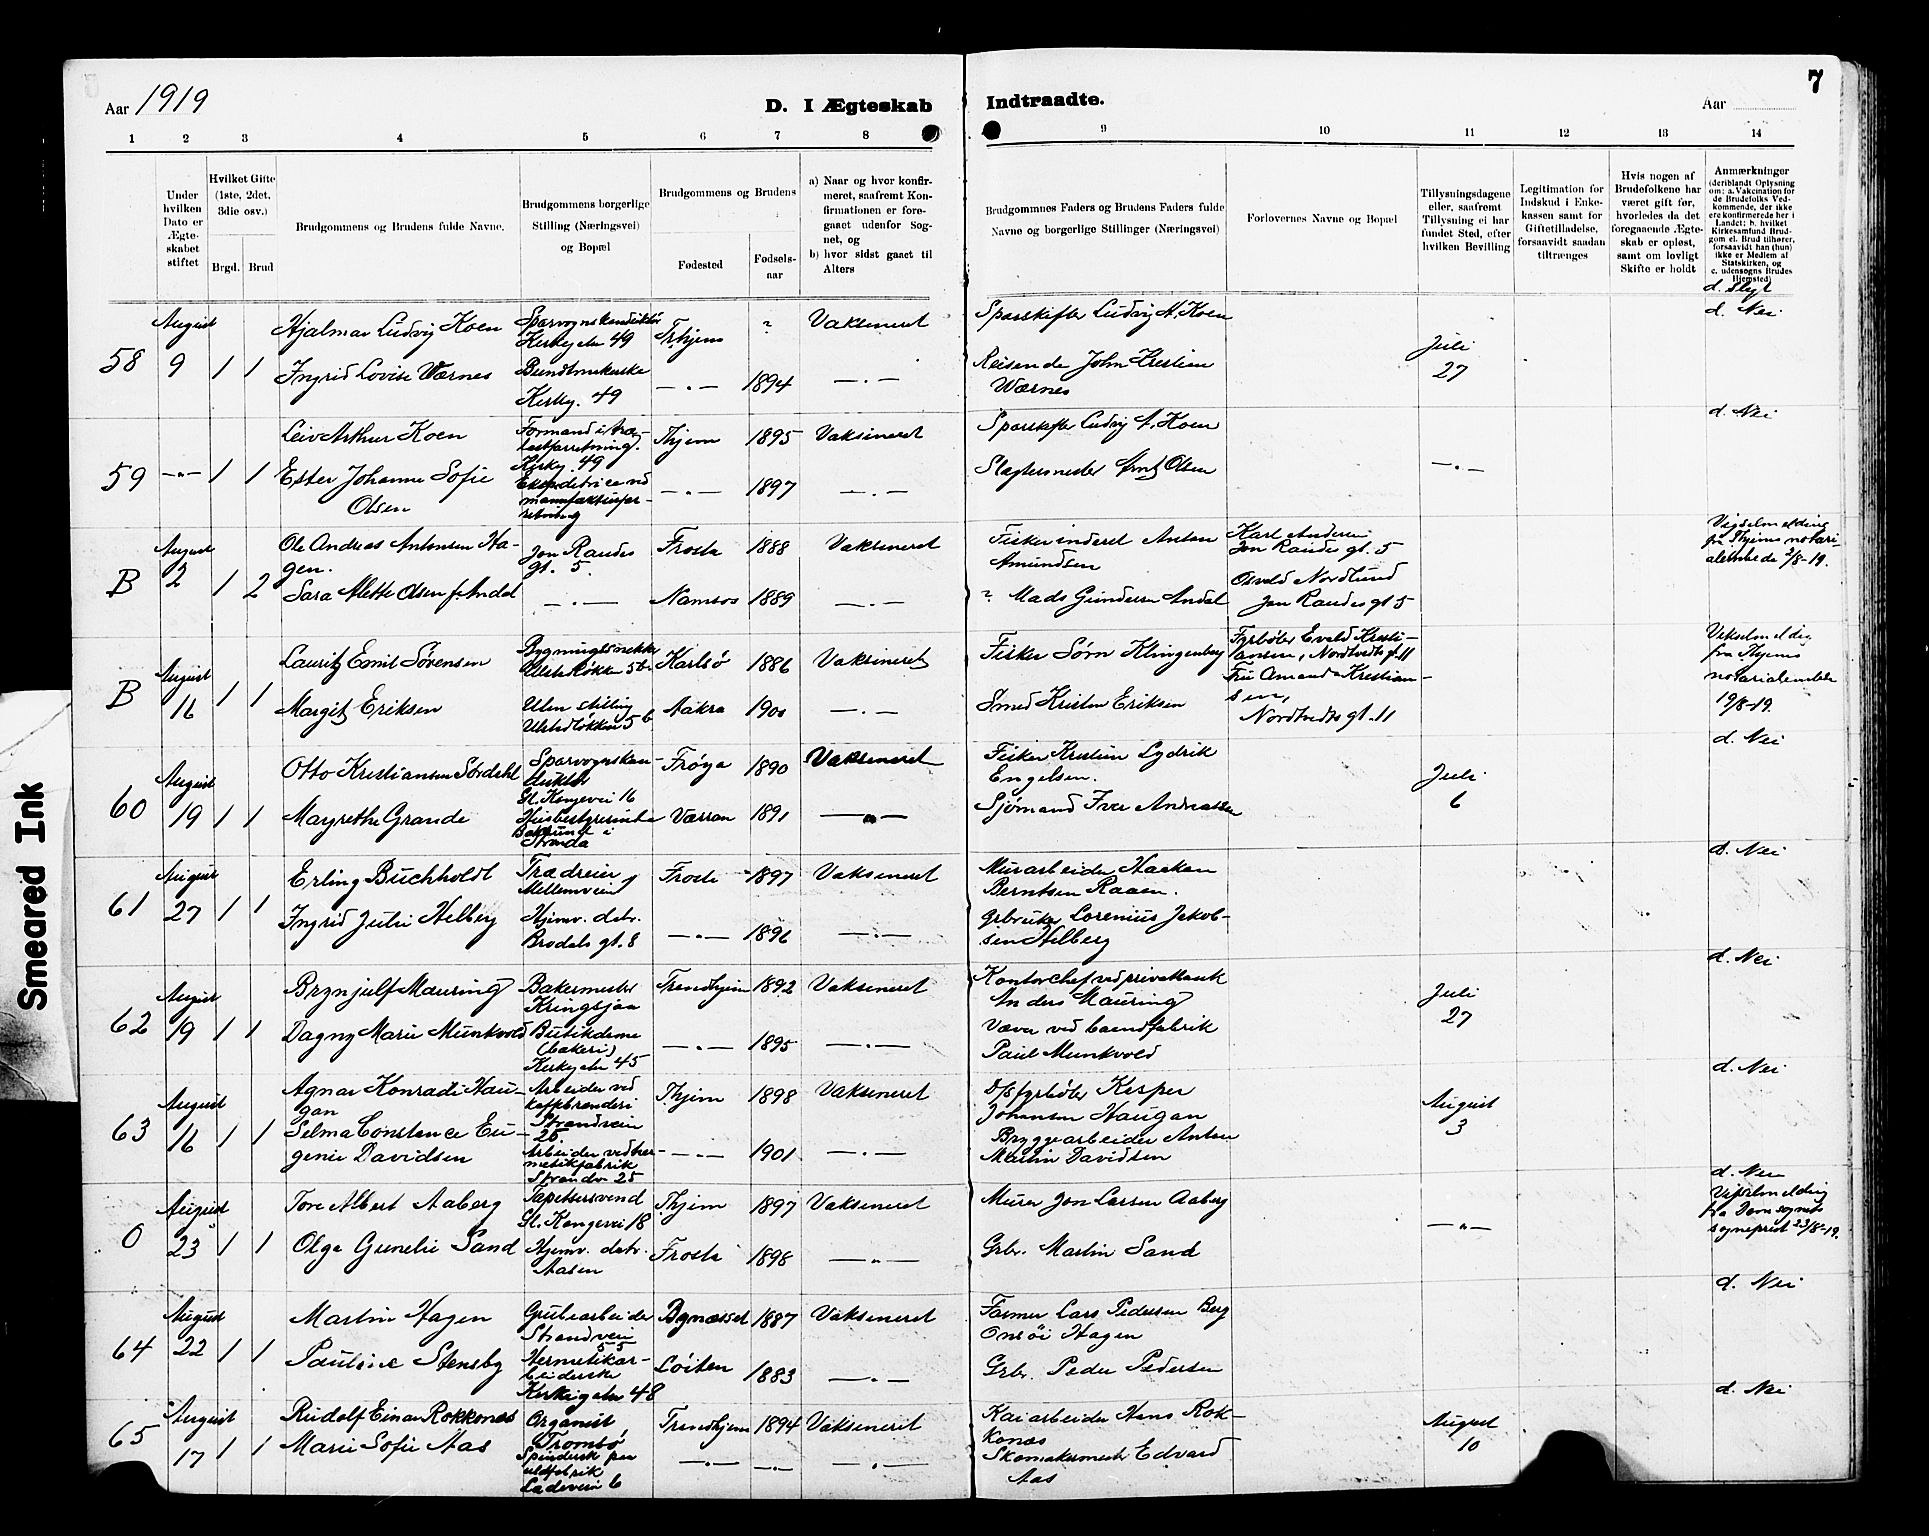 7
Aar 1919
D. I Ægteskab Indtraadte.
Aar
1 2 3 4 5 6 7 8 9 10 11 12 13 14
Under hvilken Dato er Ægteskabet stiftet
Hvilket Gifte (1ste, 2det, 3die osv.)
Brgd. Brud
Brudgommens og Brudens fulde Navne.
Brudgommens borgerlige Stilling (Næringsvei) og Bopæl
Brudgommens og Brudens
Fødested
Fødselsaar
a) Naar og hvor konfirmeret, saafremt Konfirmationen er foregaaet udenfor Sognet, og
b) hvor sidst gaaet til Alters
Brudgommes Faders og Brudens Faders fulde Navne og borgerlige Stillinger (Næringsvei)
Forlovernes Navne og Bopæl
Tillysningsdagene eller, saafremt Tillysning ei har fundet Sted, efter hvilken Bevilling
Legitimation for Indskud i Enkekassen samt for Giftetilladelse, forsaavidt saadan tiltrænges
Hvis nogen af Brudefolkene har været gift før, hvorledes da det foregaaende Ægteskab er opløst, samt om lovligt Skifte er holdt
Anmærkninger
(deriblandt Oplysning om: a. Vakcination for de Brudefolks Vedkommende, der ikke ere konfirmerede her i Landet; b. hvilket Kirkesamfund Brudgom el. Brud tilhører, forsaavidt han (hun) ikke er Medlem af Statskirken, og c. udensogns Brudes Hjemsted)
d. Slegt
58 August 9 1 1
Hjalmar Ludvig Koen
Sporvognskonduktør Kirkegaten 49
Trhjem
?
Vakseneret
Sporskifter Ludvig A. Koen
Juli 27
d. Nei
Ingrid Lovise Wærnes
Buntmakerske Kirkeg. 49
— " — 1894 — " —
Reisende John Kristian Wærnes
59 — " — 1 1
Leiv Arthur Koen
Kirkeg. 49
Thjem 1895 Vakseneret
Sporskifter Ludvig A. Koen
— " —
d. Nei
Ester Johanne Sofie Olsen
Ekspeditrice ved manufakturforretning
— " — 1897 — " —
Slagtermester Arnt Olsen
B August 2 1 2
Ole Andreas Antonsen Hagen.
Jon Raudes gt. 5.
Frosta 1888 Vakseneret
Anton Amundsen
Karl Andersen Jon Raudes gt. 5
Vigselmelding fra Thjems notarialembede 2/8-19.
Sara Alette Olsen f. Andal
— " — Namsos 1889 — " —
? Mads Gundersen Andal
Osvald Nordlund Jon Raudes gt 5
B August 16 1 1
Lauritz Emil Sørensen
Karlsø 1886 Vakseneret
Fisker Sørn Klingenberg
Fyrbøter Evald Kristiansen, Nordtvedts gt. 11
Vekselmelding fra Thjems notarialembede 19/8-19.
Margit Eriksen
Uten stilling
Aakra 1900 — " —
Smed Kristen Eriksen
Fru Amanda Kristiansen, Nordtvedts gt. 11
60 August 19 1 1
Otto Kristiansen Stordahl
Sporvognskonduktør St. Kongsvei 16
Frøya 1890 Vakseneret
Fisker Kristian Lydrik Engelsen.
Juli 6
d. Nei
Margrethe Grande
Husbestyrerinde Bakklundt i Strinda
Værran 1891 — " —
Sjømand Iver Andreassen
61 August 27 1 1
Erling Buchholdt
Trædreier Mellemveien 9
Frosta 1897 Vakseneret
Murarbeider Haaken Berntsen Raaen.
d. Nei
Ingrid Julie Helberg
Hjemv. datr. Brodals gt. 8
— " — 1896 — " —
Grbruker Lorenius Jakobsen Helberg
62 August 19 1 1
Brynjulf Mauring
Bakermester Kringsjaa
Trondhjem 1892 Vakseneret
Kontorchef ved privatbank Anders Mauring
Juli 27
d. Nei
Dagny Marie Munkvold
Butikdame (bakeri) Kirkegaten 45
— " — 1895 — " —
Væver ved baandfabrik Paul Munkvold
63 August 16 1 1
Agnar Konradi Haugan
Arbeider ved kaffebrenderi Strandveien 25.
Thjem 1898 Vakseneret
D/S fyrbøter Kasper Johansen Haugan
August 3
d. Nei
Selma Constance Eugenie Davidsen
Arbeider ved hermetikfabrik Strandv 25
— " — 1901 — " —
Bryggearbeider Anton Martin Davidsen
0 August 23 1 1
Tore Albert Aaberg
Tapetsersvend St. Kongsvei 18
Thjem 1897 Vakseneret
Murer Jon Larsen Aaberg
— " —
d. Nei
Vigselmelding fra Domsognets sogneprest 23/8-19.
Olga Gunelie Sand
Hjemv. datr. Aasen
Frosta 1898 — " —
Grbr. Martin Sand
64 August 22 1 1
Martin Hagen
Grubearbeider Strandveien 55
Bynæsset 1887 Vakseneret
Farmer Lars Pedersen Berg Onsøi Hagen
d. Nei
Pauline Stensby
Hermetikarbeiderske Kirkegaten 48
Løiten 1883 — " —
Grbr. Peder Pedersen
65 August 17 1 1
Rudolf Einar Rokkones
Organist Tromsø
Trondhjem 1894 Vakseneret
Kaiarbeider Hans Rokkones
August 10
d. Nei
Marie Sofie Aas
Ladeveien 6
— " — — " — — " —
Skomakermester Edvard Aas
Smeared Ink